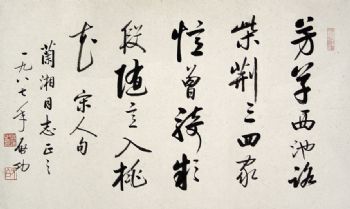 芳草西池路
柴荆三四家
憶曾騎款
段随意入桃
花 宋人句
蘭湘同志正之
一九八七年 啓功